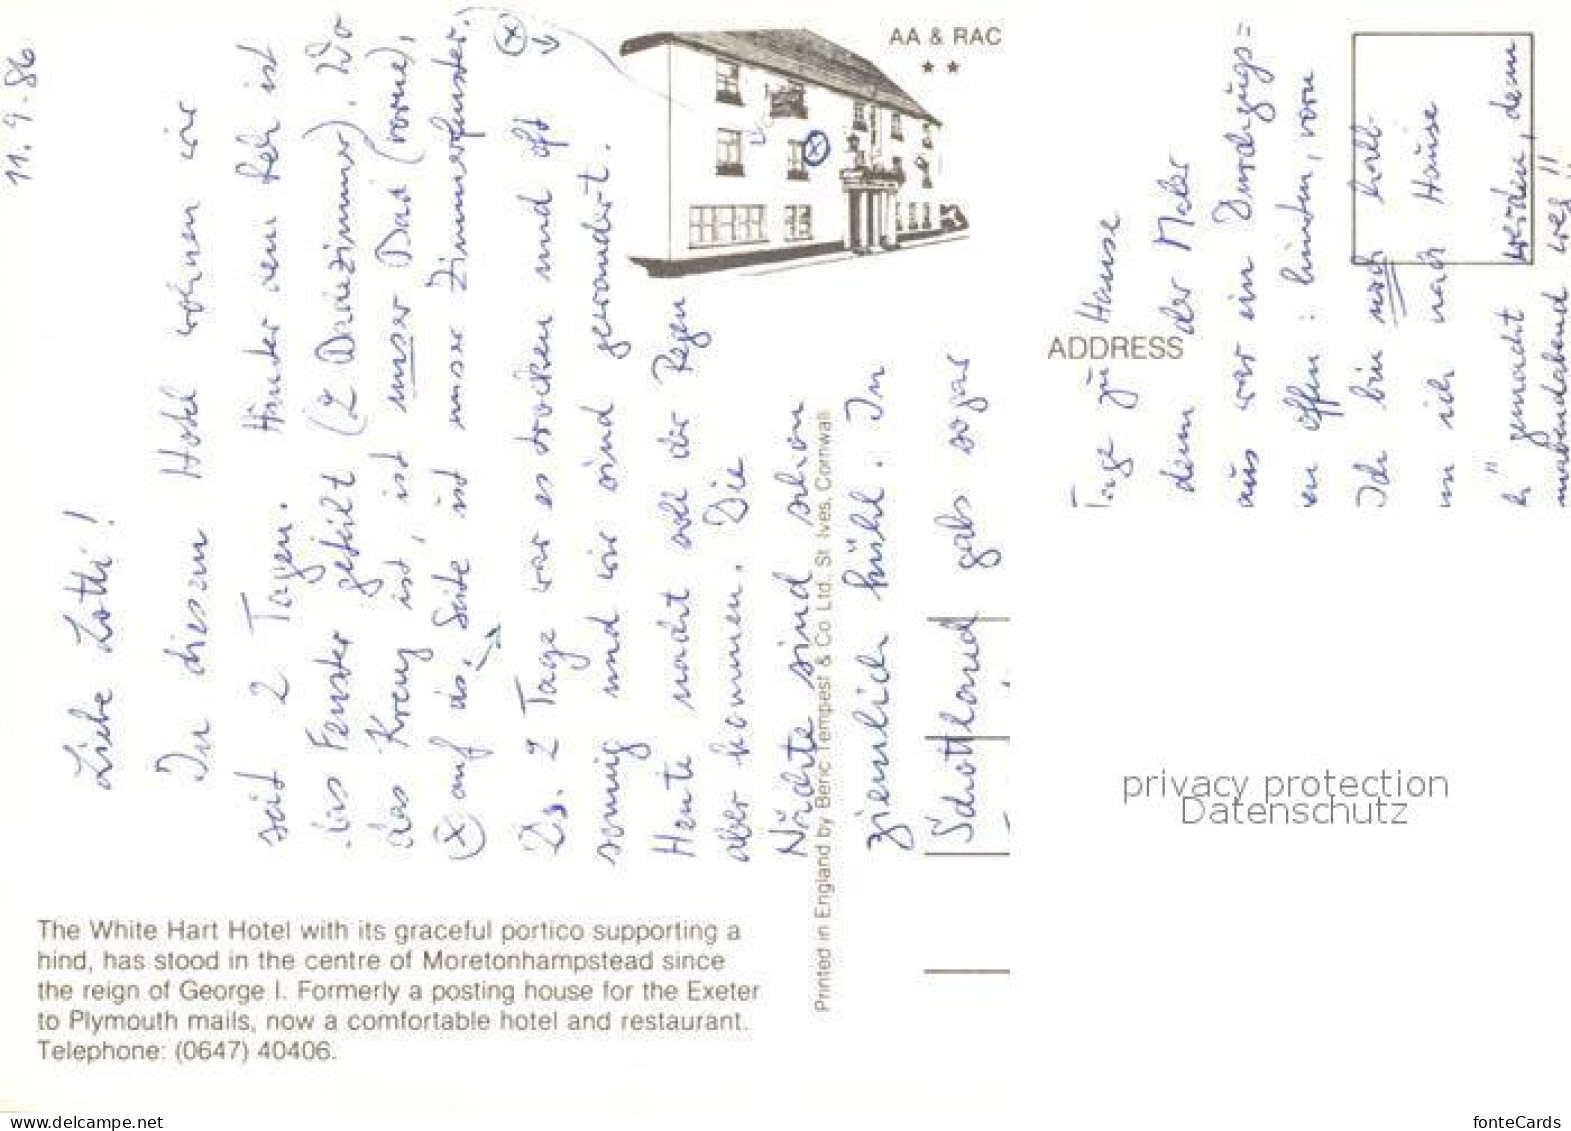 11.9.86
Liebe Lotti!
In diesem Hotel wohnen wir
seit 2 Tagen. Hinter dem Reh ist
das Fenster geteilt (2 Badezimmer). Wo
das Kreuz ist, ist unser Bad (vorne),
(x) auf ds. Seite ist unser Zimmerfenster.
(x)
Ds. 2 Tage war es trocken und oft
sonnig und wir sind gewandert.
Heute macht der Regen
aber kommen. Die
Nächte sind schon
ziemlich kühl. In
Schottland gabs sogar
Tage zu Hause
denn der Maler
aus war ein Durchzugs=
en offen: hinten, vorn
Ich bin noch halb-
nach Hause
gemacht werden, denn
weg!!
AA & RAC
★ ★
ADDRESS
The White Hart Hotel with its graceful portico supporting a
hind, has stood in the centre of Moretonhampstead since
the reign of George I. Formerly a posting house for the Exeter
to Plymouth mails, now a comfortable hotel and restaurant.
Telephone: (0647) 40406.
Printed in England by Beric Tempest & Co Ltd. St Ives, Cornwall
privacy protection
Datenschutz
www.delcampe.net
fonteCards